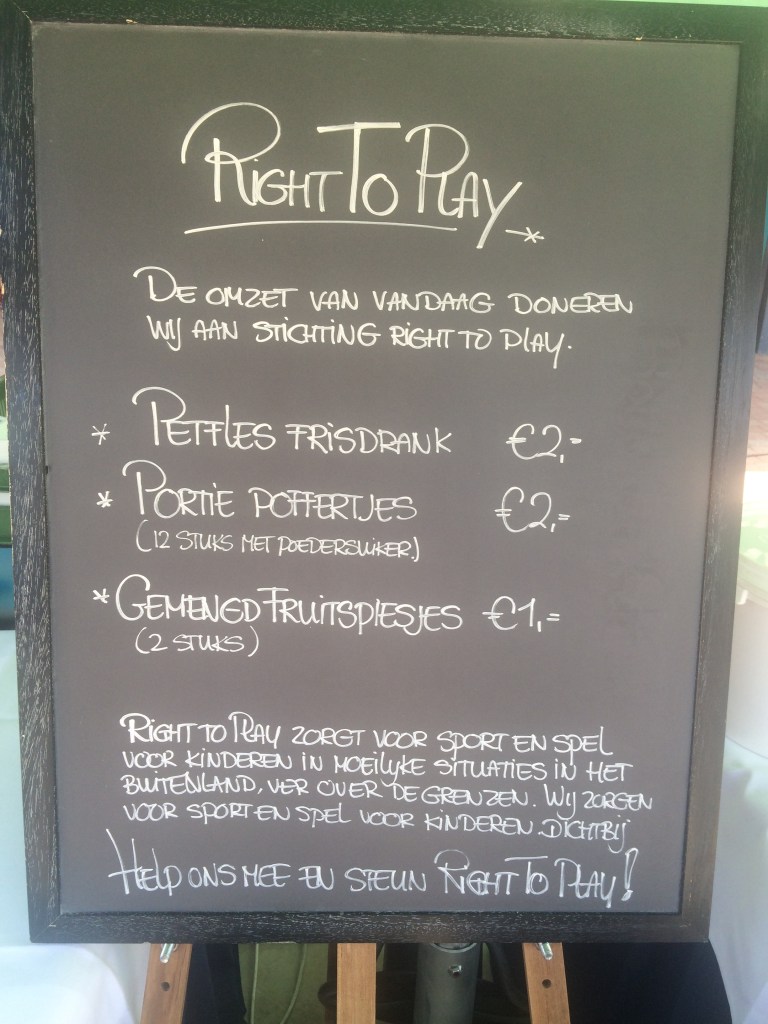 RIGHT TO PLAY
DE OMZET VAN VANDAAG DONEREN
WIJ AAN STICHTING RIGHT TO PLAY.
* PETFLES FRISDRANK €2,-
* PORTIE POFFERTJES €2,=
(12 STUKS MET POEDERSUIKER.)
* GEMENGD FRUITSPIESJES €1,=
(2 STUKS)
RIGHT TO PLAY ZORGT VOOR SPORT EN SPEL
VOOR KINDEREN IN MOEILYKE SITUATIES IN HET
BUITENLAND, VER OVER DE GRENZEN. WIJ ZORGEN
VOOR SPORT EN SPEL VOOR KINDEREN DICHTBIJ
HELP ONS MEE EN STEUN RIGHT TO PLAY!